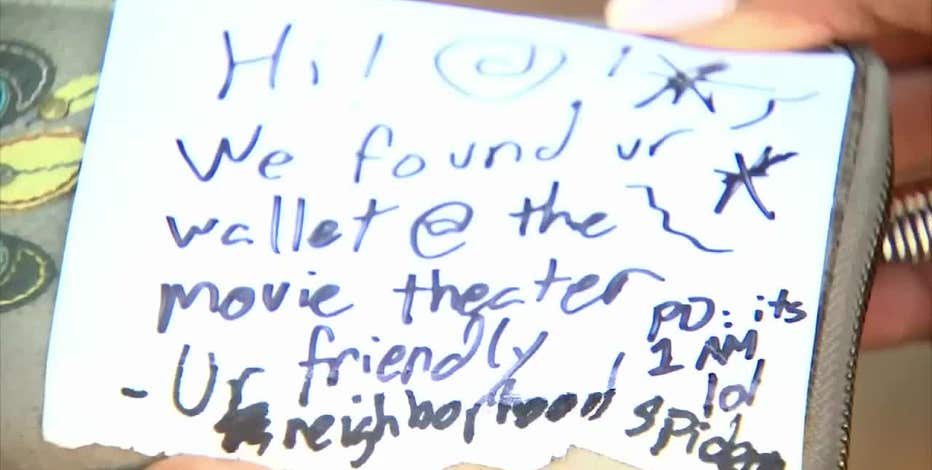 Hi!
We found ur
wallet @ the
movie theater
- Ur friendly
neighborhood
PD: its
1 AM
lol